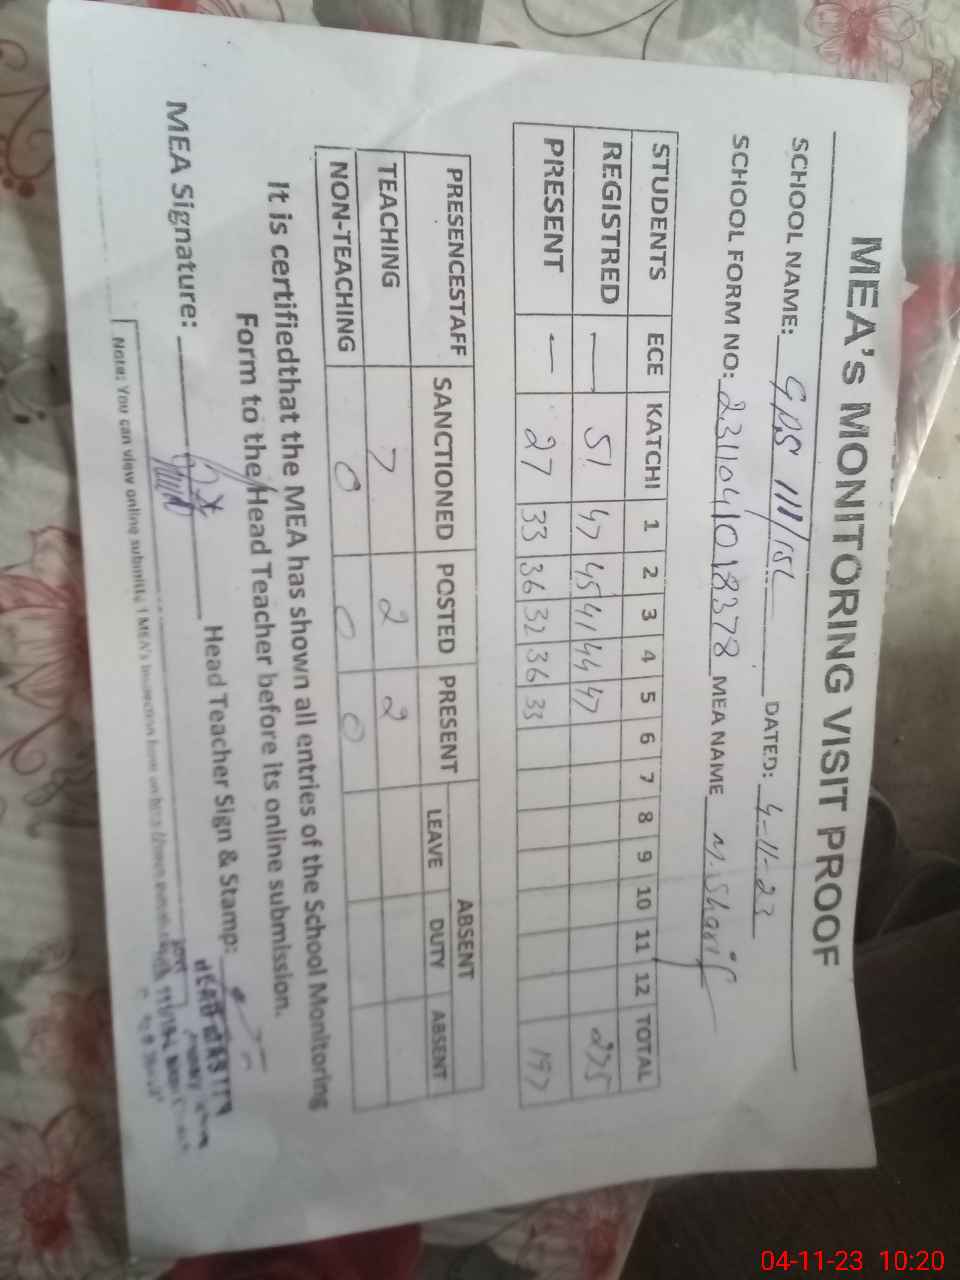 MEA's MONITORING VISIT PROOF
SCHOOL NAME: GPS 111/15L DATED: 4-11-23
SCHOOL FORM NO: 2311041018378 MEA NAME M. Sharif
STUDENTS ECE KATCHI 1 2 3 4 5 6 7 8 9 10 11 12 TOTAL
REGISTRED — 51 47 45 41 44 47 275
PRESENT — 27 33 36 32 36 33 197
PRESENCESTAFF SANCTIONED POSTED PRESENT ABSENT
LEAVE DUTY ABSENT
TEACHING 7 2 2
NON-TEACHING 0 0 0
It is certifiedthat the MEA has shown all entries of the School Monitoring
Form to the Head Teacher before its online submission.
MEA Signature: Head Teacher Sign & Stamp:
HEAD MASTER
Note: You can view online submitted MEA's
04-11-23 10:20